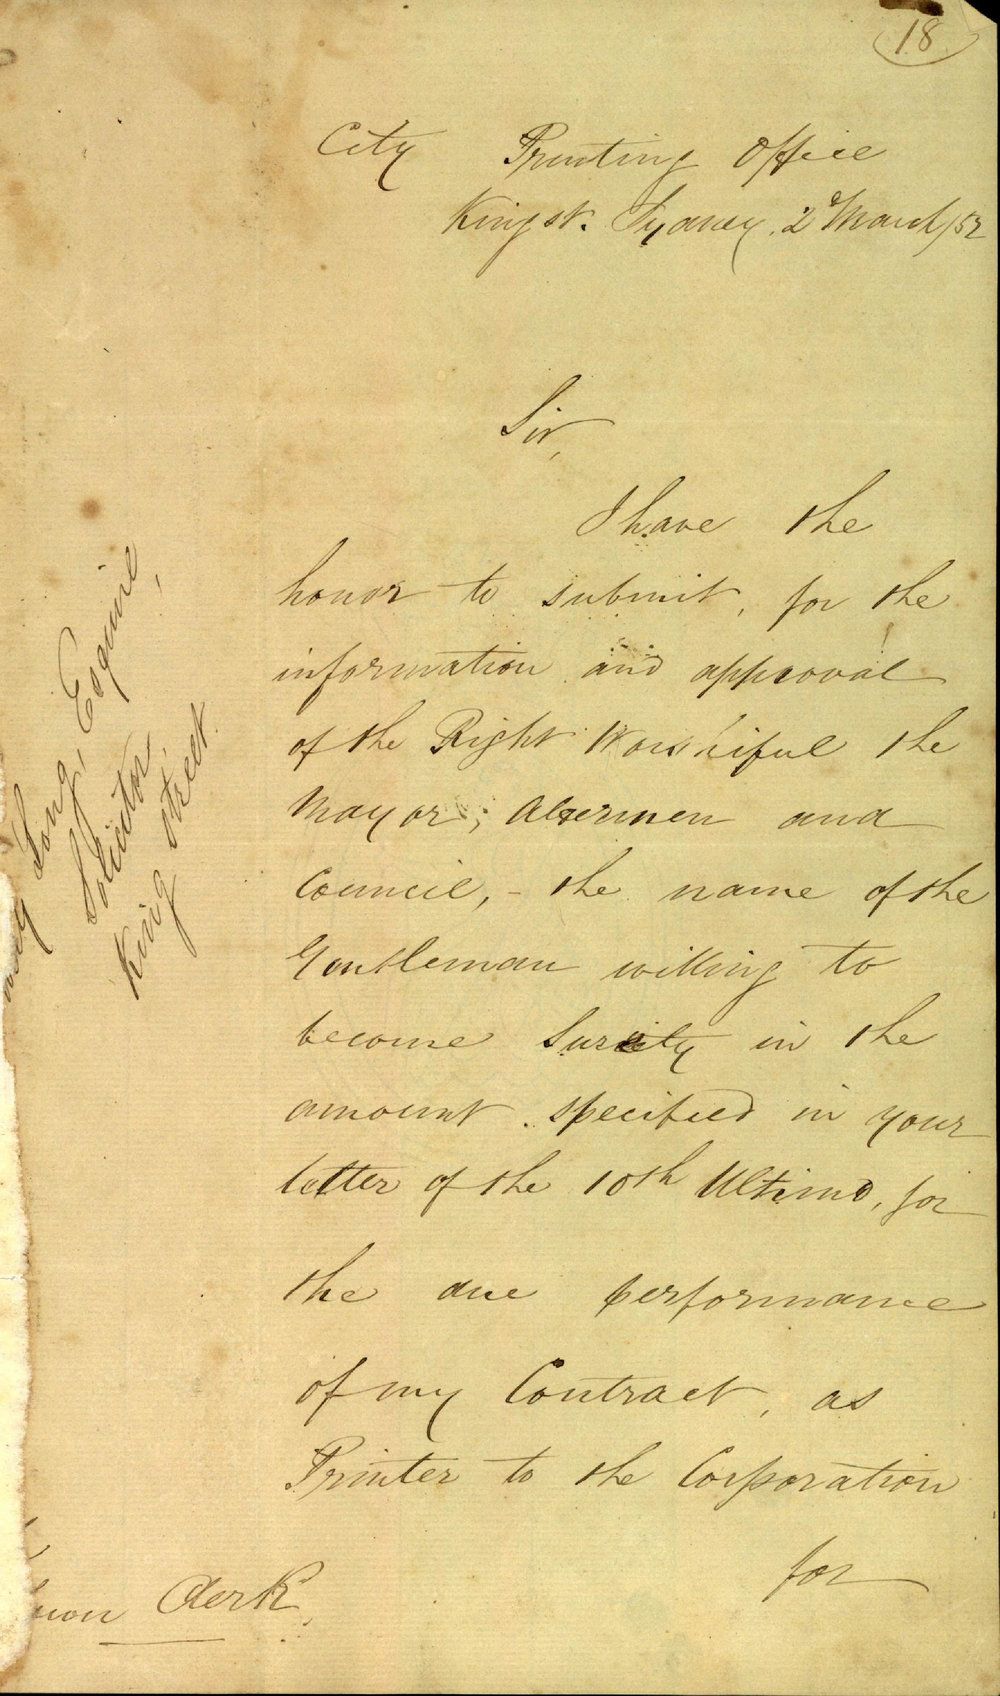 18
City Printing Office
King st. Sydney, 2d March/52
Sir,
I have the
honor to submit, for the
information and approval
of the Right Worshiful the
Mayor; Aldermen and
Council, - the name of the
Gentleman willing to
become Surety in the
amount specified in your
letter of the 10th Ultimo, for
the due performance
of my Contract, as
Printer to the Corporation
for
Long, Esquire,
Solicitor,
King street.
Clerk,